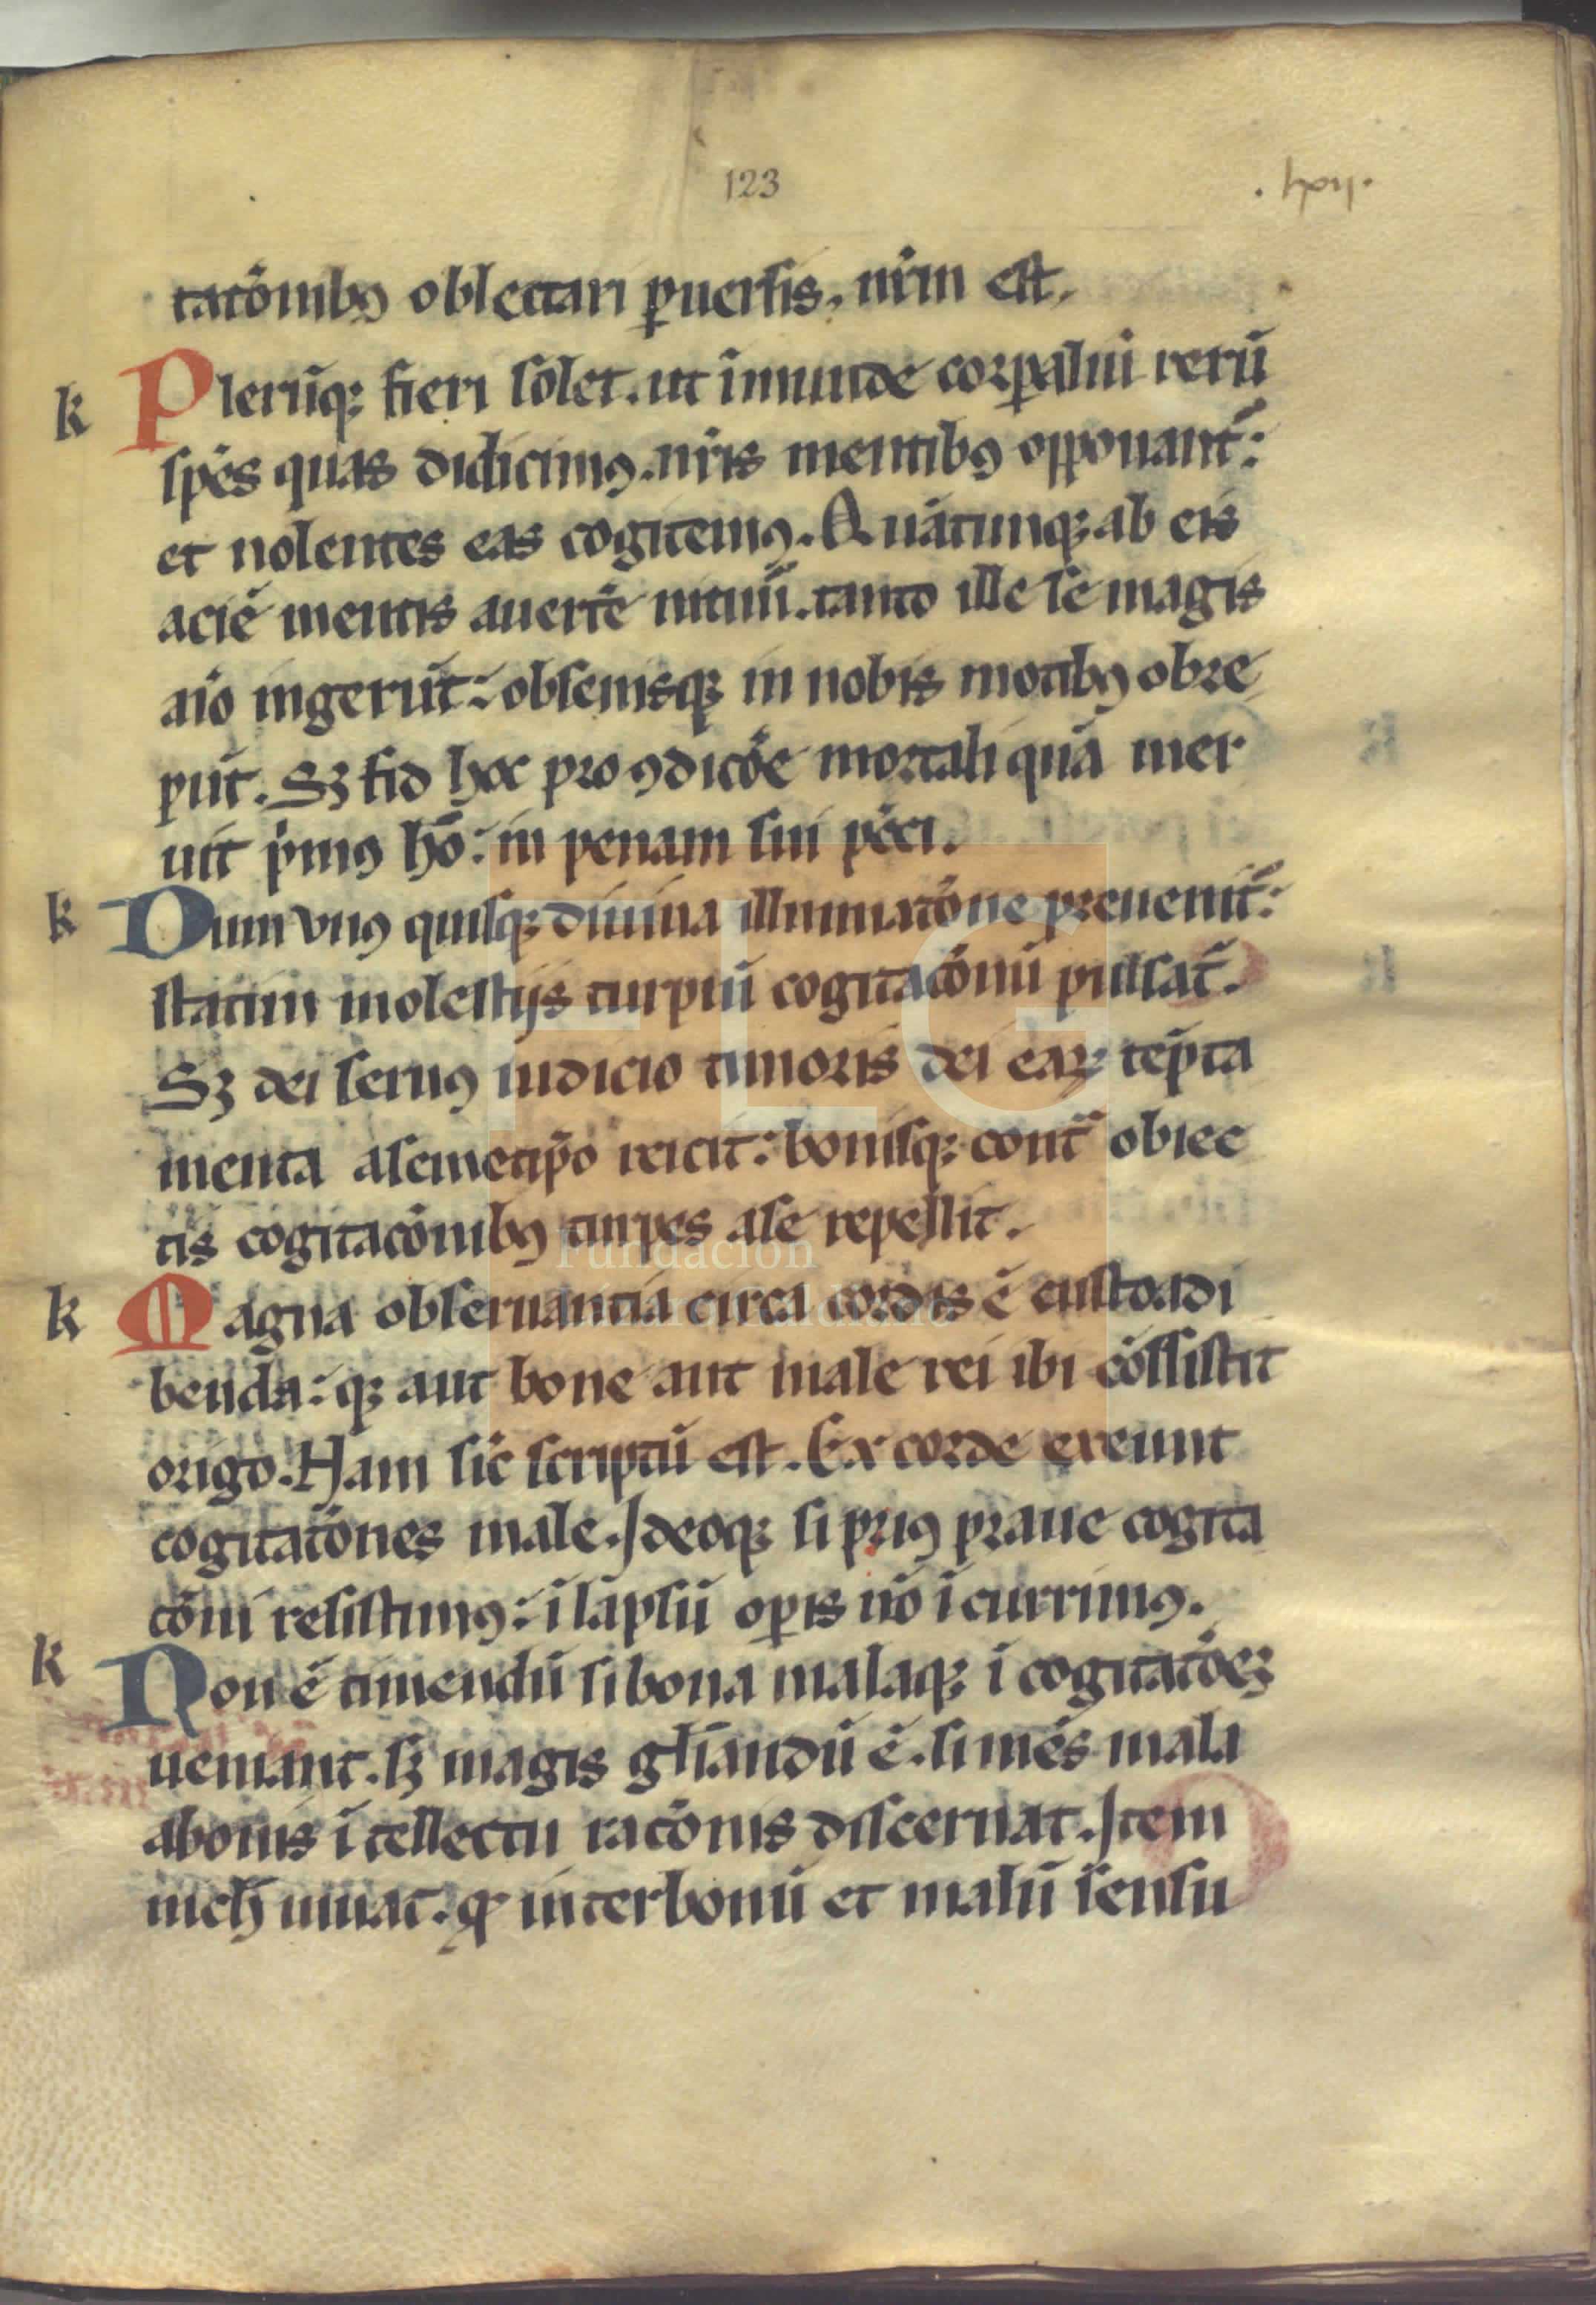 123
.lxıı.
tatōnibꝯ oblectari ꝑuersis. nr̄m est.
k Pleru̅qꝫ fieri solet. ut i̅munde corꝑaliu̅ reru̅
sp̅es quas didicimꝯ. nr̄is mentibꝯ opponant᷑:
et nolentes eas cogitemꝯ. Qua̅tumqꝫ ab eis
acie̅ mentis auert̅e nitim̅. tanto ille se magis
aı̅o ingeru̅t: obsenisqꝫ in nobis motibꝯ obre
pu̅t. Sꝫ fid hoc pro ꝯdico̅e mortali qua̅ mer
uit p̍mꝯ ho̅: in penam sui pc̅ci.
k Dum vnꝯ quisqꝫ diuina illuminato̅ne preuenit᷑:
statim molestijs turpiu̅ cogitaco̅nu̅ pulsat᷑.
Sꝫ dei seruꝯ iudicio timoris dei eaꝝ te̅pta
menta asemetip̅o reicit: bonisqꝫ cont᷑ obiec
tis cogitaco̅nibꝯ turpes ase repellit.
k Magna obseruantia circa cordis e̅ custo. adi
benda: qꝫ aut bone aut male rei ibi co̅ssistit
origo. Nam sic̅ scriptu̅ est. Ex corde exeunt
cogitato̅nes male. Ideoqꝫ si priꝯ praue cogita
co̅ni resistimꝯ: i̅ lapsu̅ oꝑis no̅ i̅currimꝯ.
k Non e̅ timendu̅ si bona malaqꝫ i̅ cogitato̅eꝫ
ueniant. sꝫ magis gl̅iandu̅ e̅. si me̅s mala
abonis i̅tellectu raco̅nis discernat. Item
nich̅ iuuat. qꝫ inter bonu̅ et malu̅ sensu
FLG
Fundación